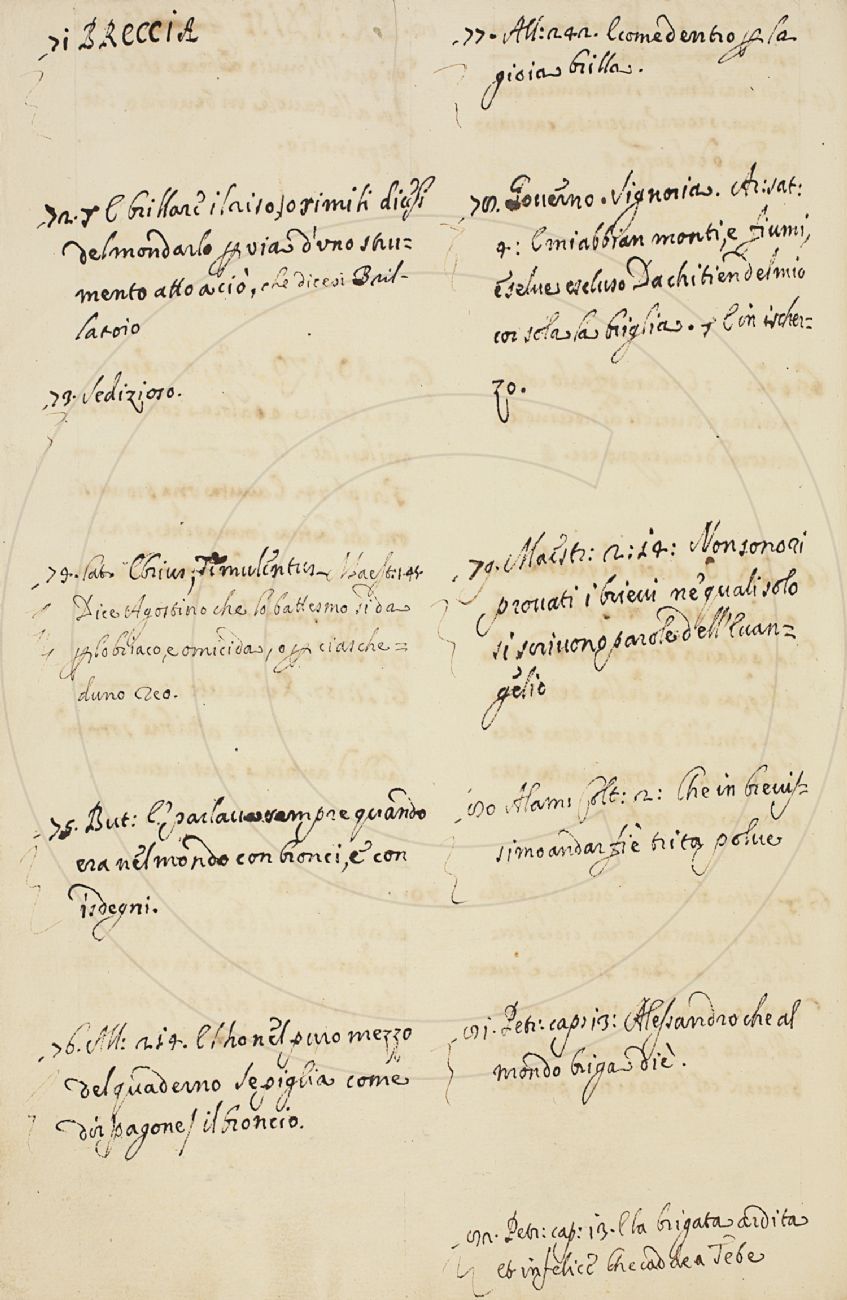 71 BRECCIA
72. E brillare il riso, o simili dicesi
del mondarlo p via d'uno stru-
mento atto a ciò, che dicesi Bril-
latoio
73. Sedizioso.
74. Lat. Ebrius, Temulentus Maest: 145
Dice Agostino che lo battesmo si da
p lo briaco, e omicida, o p ciasche=
duno reo.
75. But: E parlava sempre quando
era nel mondo con bronci, e con
isdegni.
76. All: 214. E l'ho nel puro mezzo
del quaderno Se piglia come
dir pagones il broncio.
77. All: 242. E come dentro p la
gioia brilla.
78. Governo. Signoria. Ar: sat:
4: E mi abbian monti, e fiumi,
e selve escluso Da chi tien del mio
cor sola la briglia. E in ischer=
zo.
79. Maestr: 2: 14: Non sono ri
provati i brievi ne' quali solo
si scrivono parole dell'Evan=
gelio
80 Alam: Colt: 2: Che in brevis=
simo andar fiè trita polve
81. Petr: cap: 13: Alessandro che al
mondo briga diè.
82. Petr: cap: 13. E la brigata ardita
et infelice che cadde a Tebe